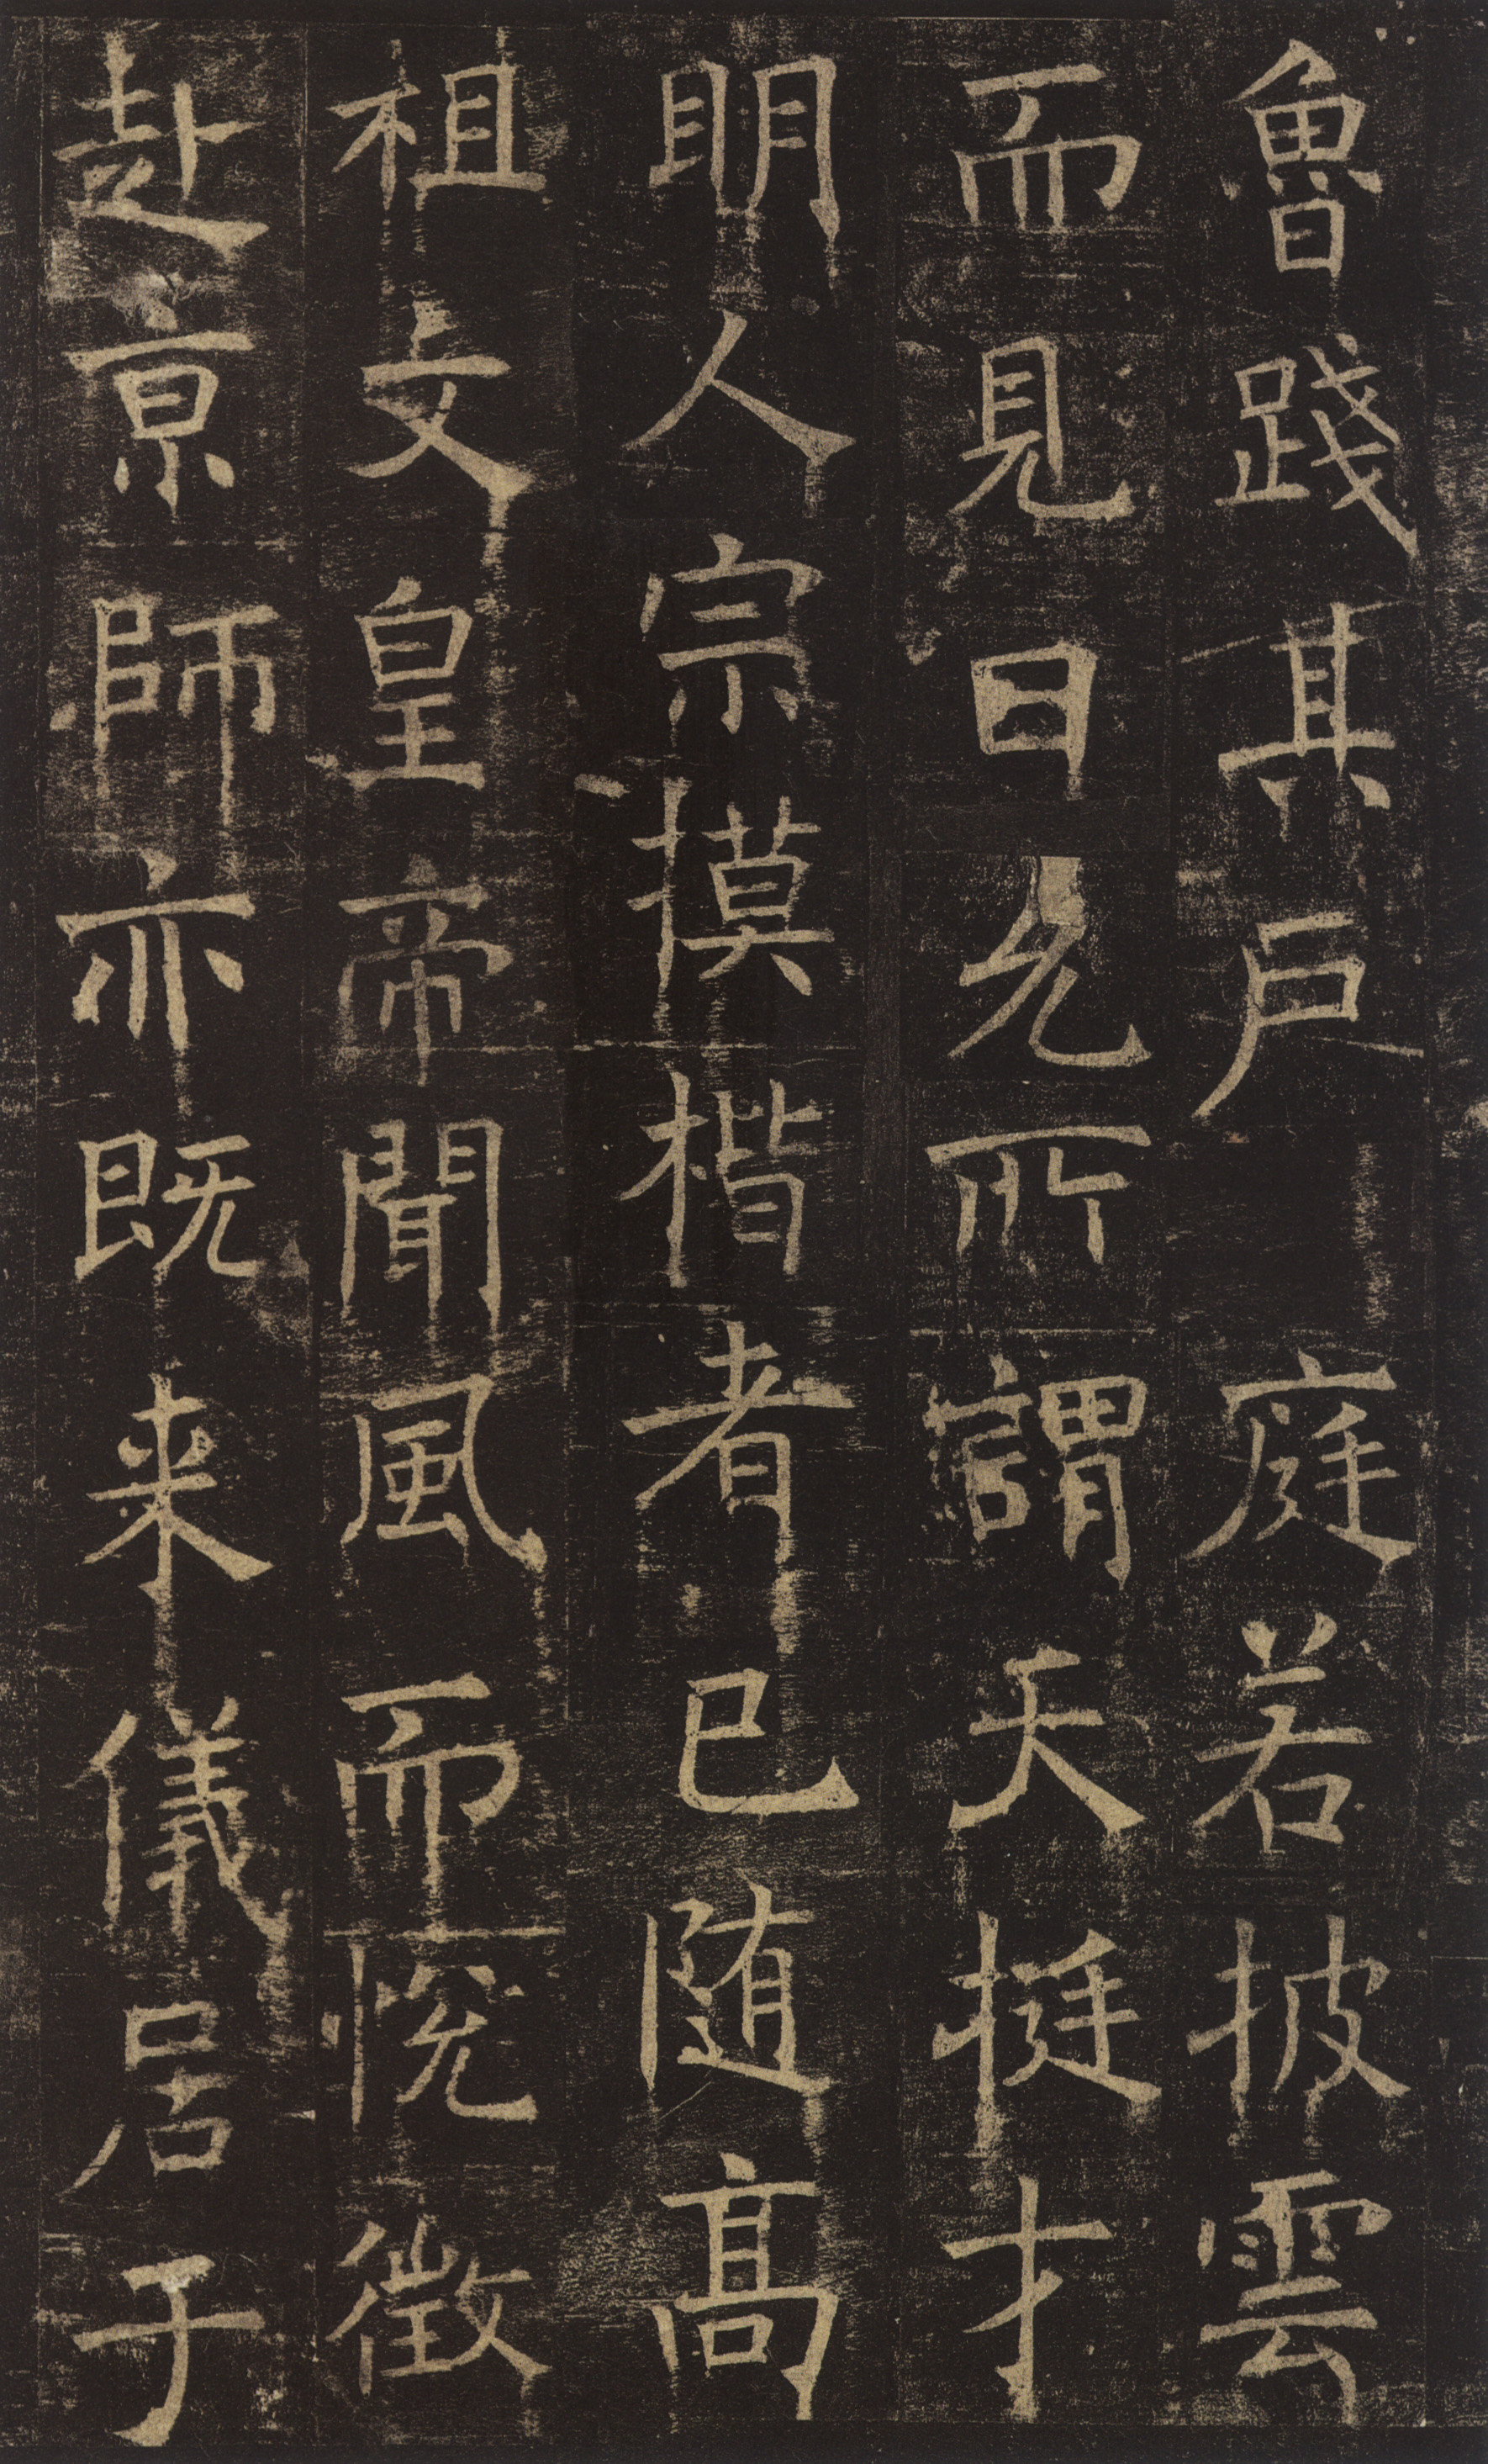 魯踐其戶庭若披雲
而見日所謂天挺才
明人宗摸楷者已随高
祖文皇帝聞風而悅徵
赴京師亦既来儀居于